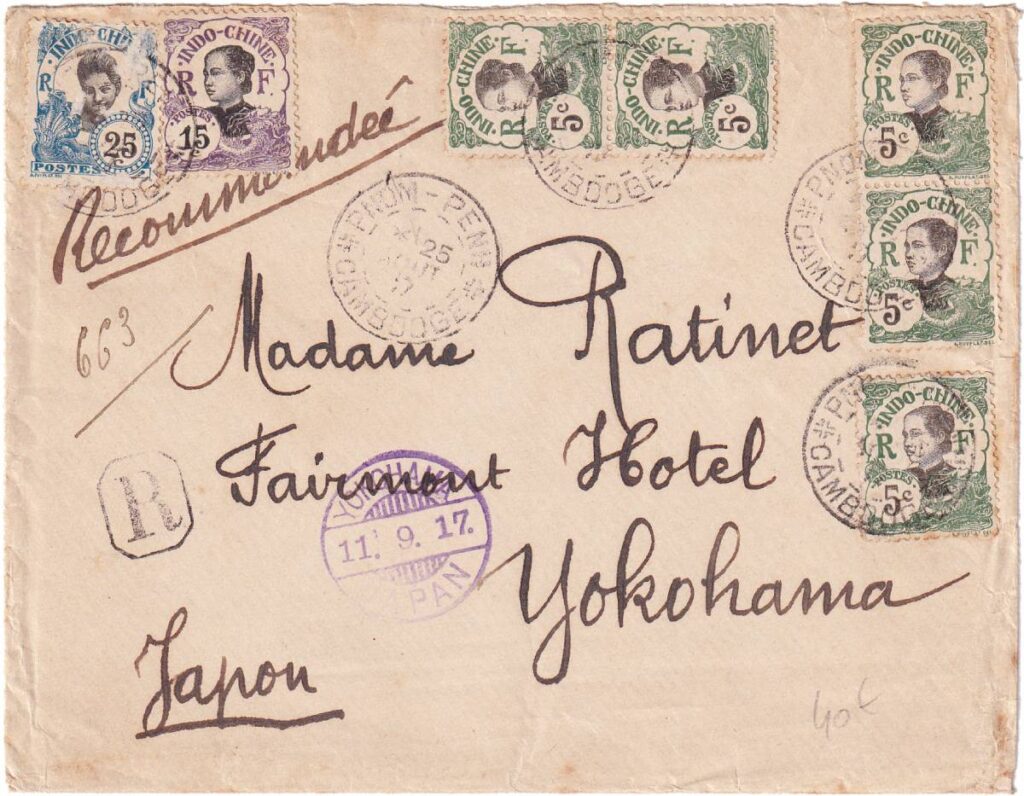 INDO-CHINE
R F
25
POSTES
INDO-CHINE
R F
POSTES
15
INDO-CHINE
R F
5c
INDO-CHINE
R F
5c
INDO-CHINE
R F
POSTES
5c
INDO-CHINE
R F
POSTES
5c
INDO-CHINE
R F
5c
Recommandée
PNÔM-PENH
25
AOUT
17
CAMBODGE
CAMBODGE
CAMBODGE
CAMBODGE
663
Madame Ratinet
Fairmont Hotel
Yokohama
Japon
R
YOKOHAMA
11. 9. 17.
JAPAN
40€